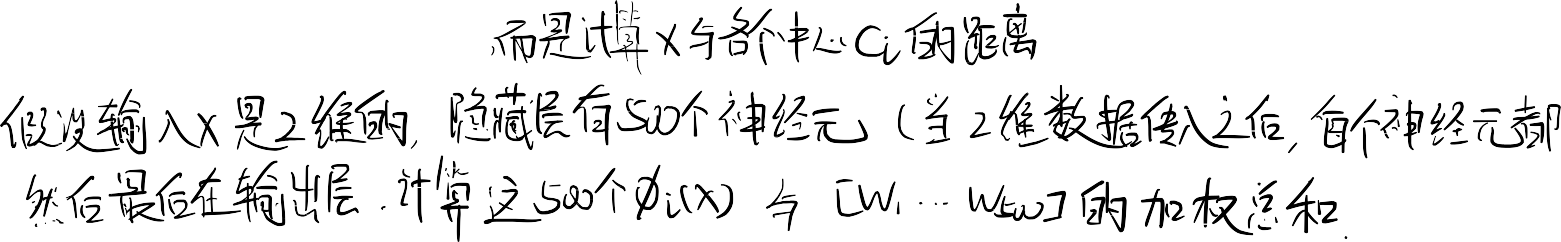 ,而是计算x与各个中心Ci的距离
假设输入x是2维的, 隐藏层有500个神经元 (当2维数据传入之后, 每个神经元都
然后最后在输出层.计算这500个φi(x) 与 [W1 … W500]的加权总和.